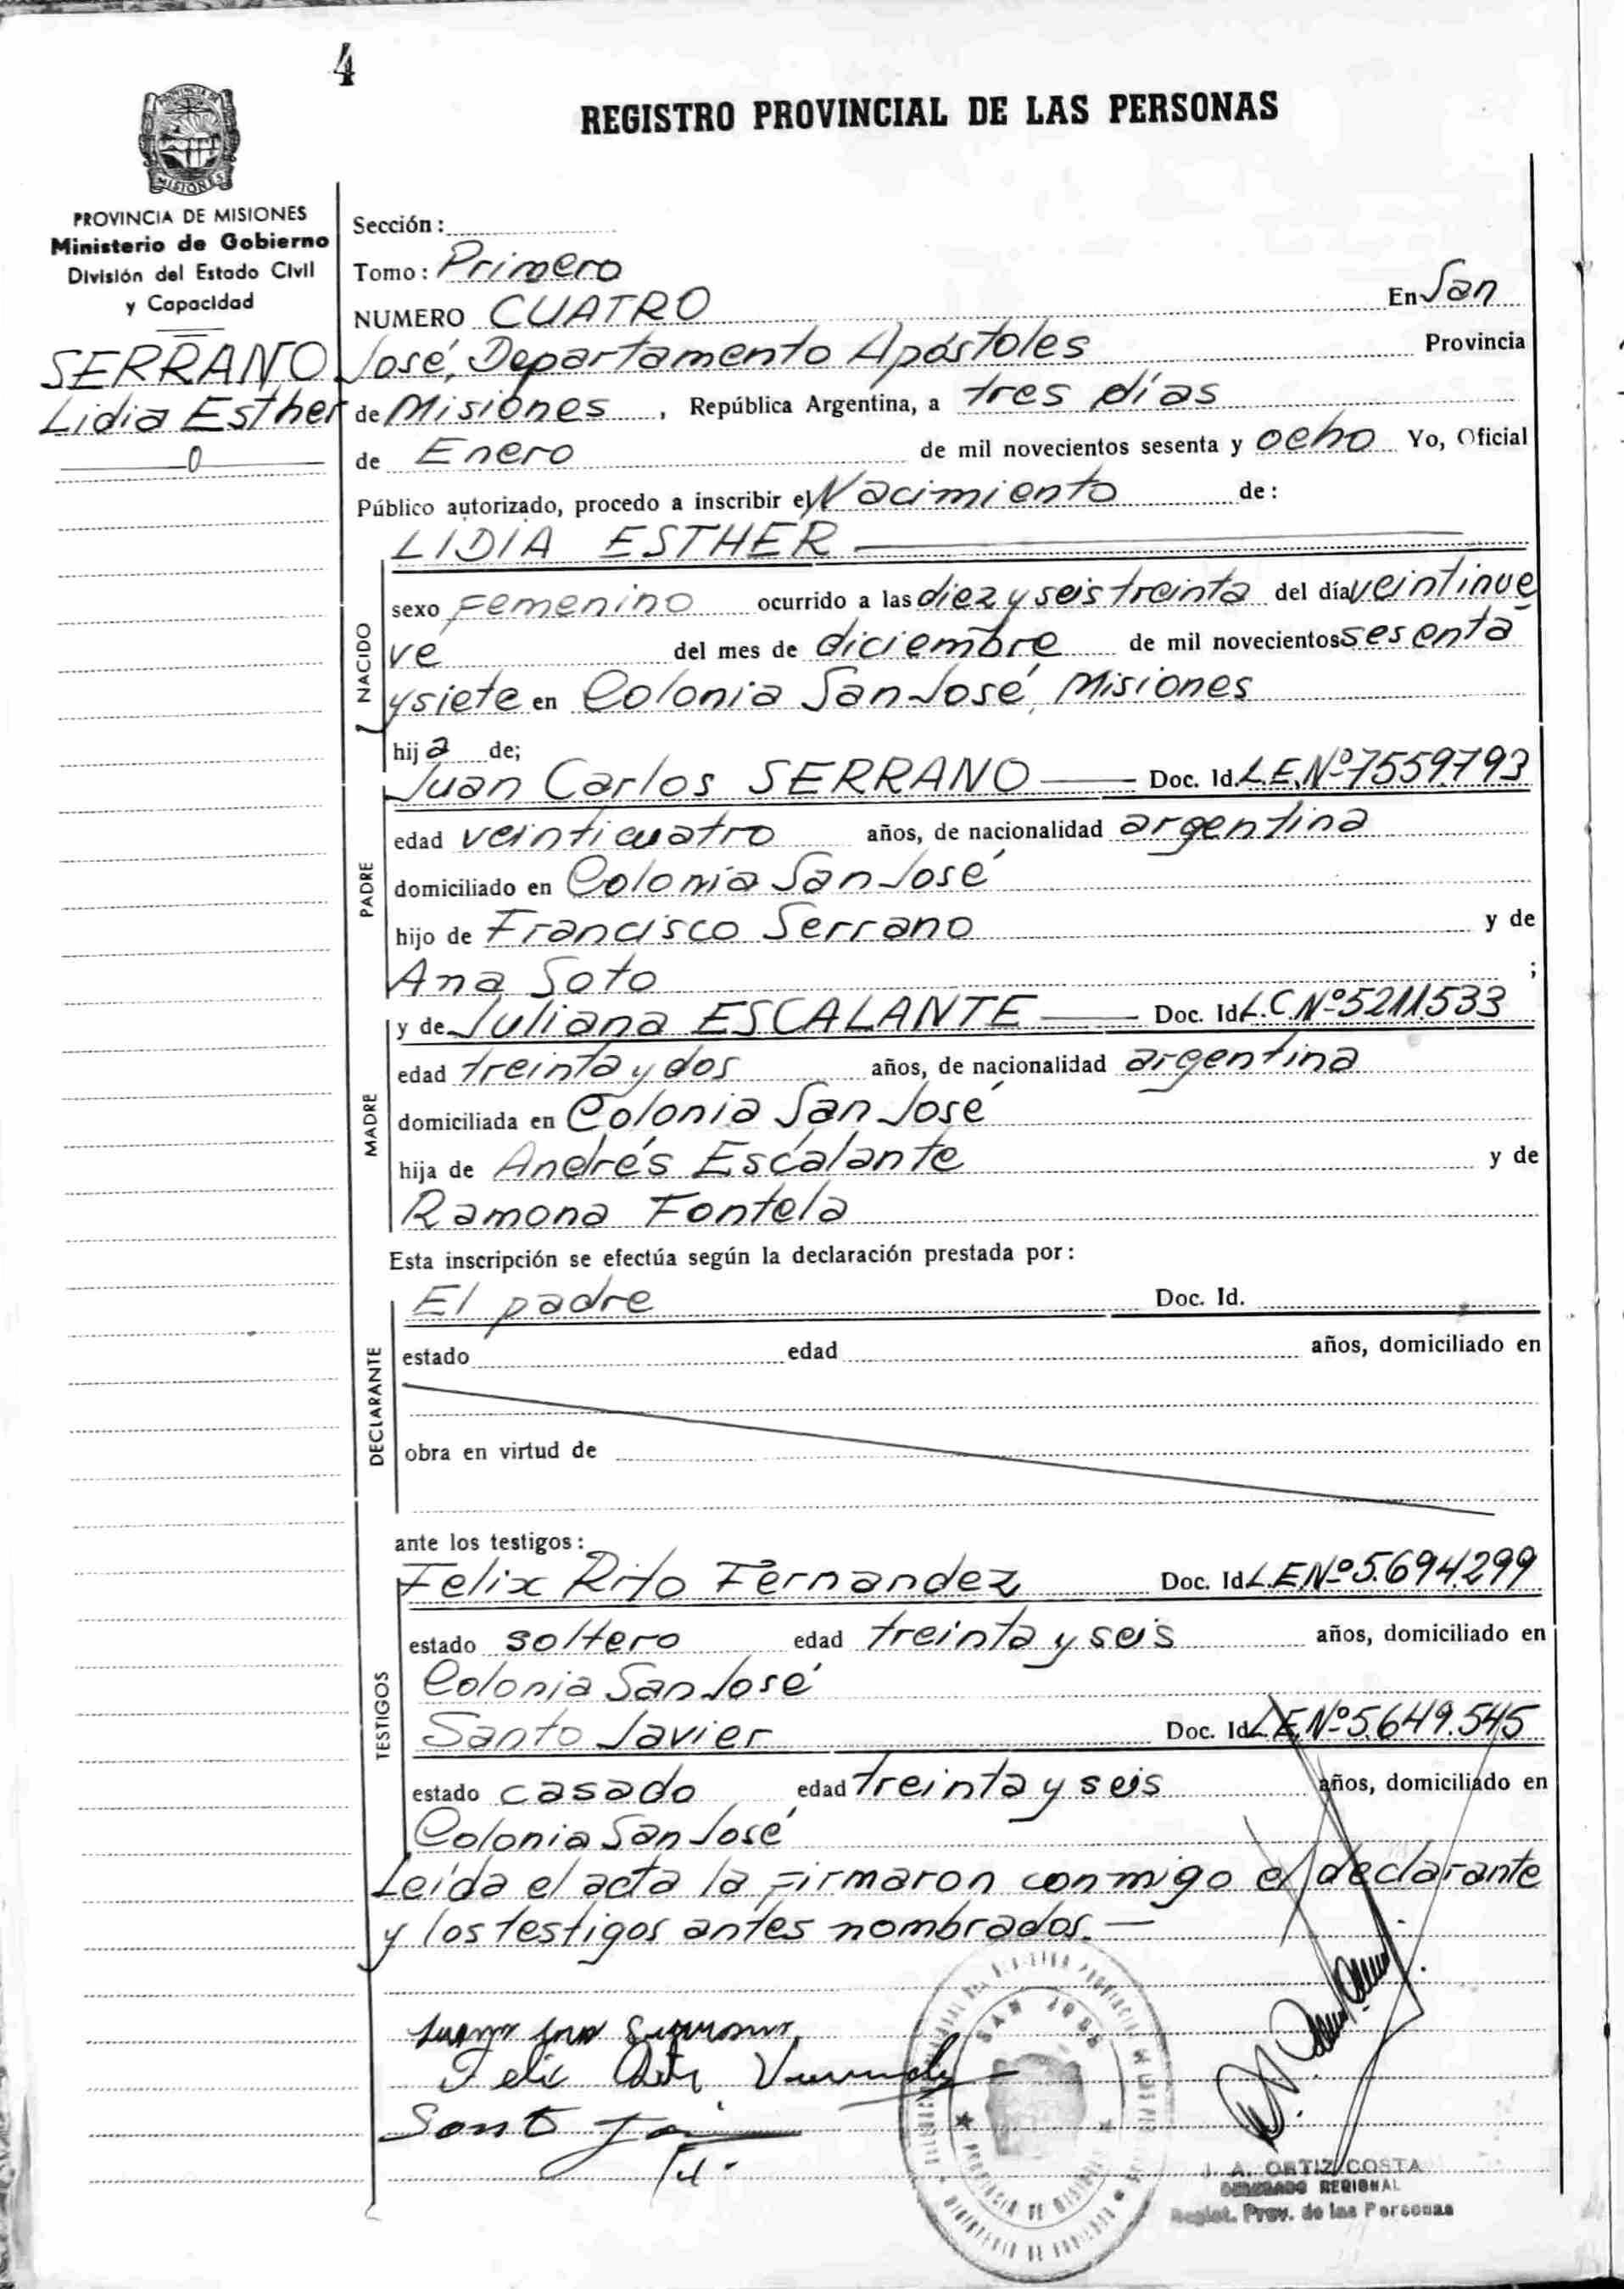 4
REGISTRO PROVINCIAL DE LAS PERSONAS
MISIONES
PROVINCIA DE MISIONES
Ministerio de Gobierno
División del Estado Civil
y Capacidad
SERRANO
Lidia Esther
Sección:
Tomo: Primero
NUMERO CUATRO En San
José, Departamento Apóstoles Provincia
de Misiones, República Argentina, a tres días
de Enero de mil novecientos sesenta y ocho Yo, Oficial
Público autorizado, procedo a inscribir el Nacimiento de:
LIDIA ESTHER
NACIDO
sexo Femenino ocurrido a las diez y seis treinta del día veintinue
ve del mes de diciembre de mil novecientos sesenta
y siete en Colonia San José, Misiones
hija de;
PADRE
Juan Carlos SERRANO Doc. Id. L.E.Nº7559793
edad veinticuatro años, de nacionalidad argentina
domiciliado en Colonia San José
hijo de Francisco Serrano y de
Ana Soto ;
MADRE
y de Juliana ESCALANTE Doc. Id L.C.Nº5211.533
edad treinta y dos años, de nacionalidad argentina
domiciliada en Colonia San José
hija de Andrés Escalante y de
Ramona Fontela
Esta inscripción se efectúa según la declaración prestada por:
DECLARANTE
El padre Doc. Id.
estado edad años, domiciliado en
obra en virtud de
ante los testigos:
TESTIGOS
Felix Rito Fernandez Doc. Id L.E.Nº5.694.299
estado soltero edad treinta y seis años, domiciliado en
Colonia San José
Santo Javier Doc. Id L.E.Nº5.649.545
estado casado edad treinta y seis años, domiciliado en
Colonia San José
Leída el acta la firmaron conmigo el declarante
y los testigos antes nombrados.—
SAN JOSE
PROVINCIA DE MISIONES
J. A. ORTIZ COSTA
DELEGADO REGIONAL
Regist. Prov. de las Personas